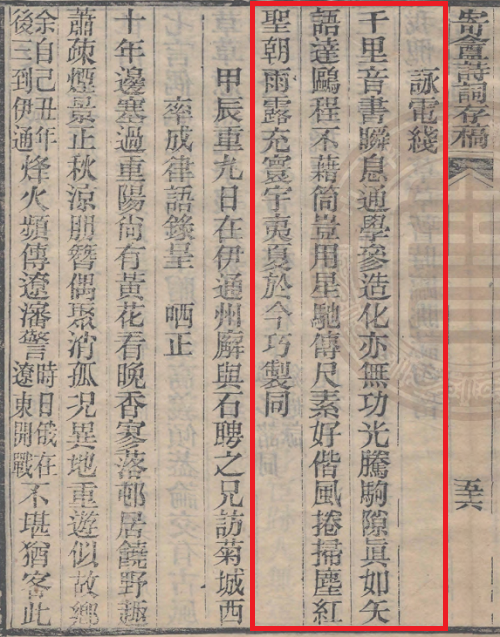 寄盦詩詞存稿
五六
詠電綫
千里音書瞬息通學參造化亦無功光騰駒隙眞如矢
語達鷗程不藉筒豈用星馳傳尺素好偕風捲掃塵紅
聖朝雨露充寰宇夷夏於今巧製同
甲辰重九日在伊通州廨與石聘之兄訪菊城西
率成律語錄呈 哂正
十年邊塞過重陽尙有黃花看晚香寥落邨居饒野趣
蕭疎煙景正秋涼朋簪偶聚消孤況異地重遊似故鄉
余自己丑年後三到伊通烽火頻傳遼瀋警時日俄在遼東開戰不堪猶客此